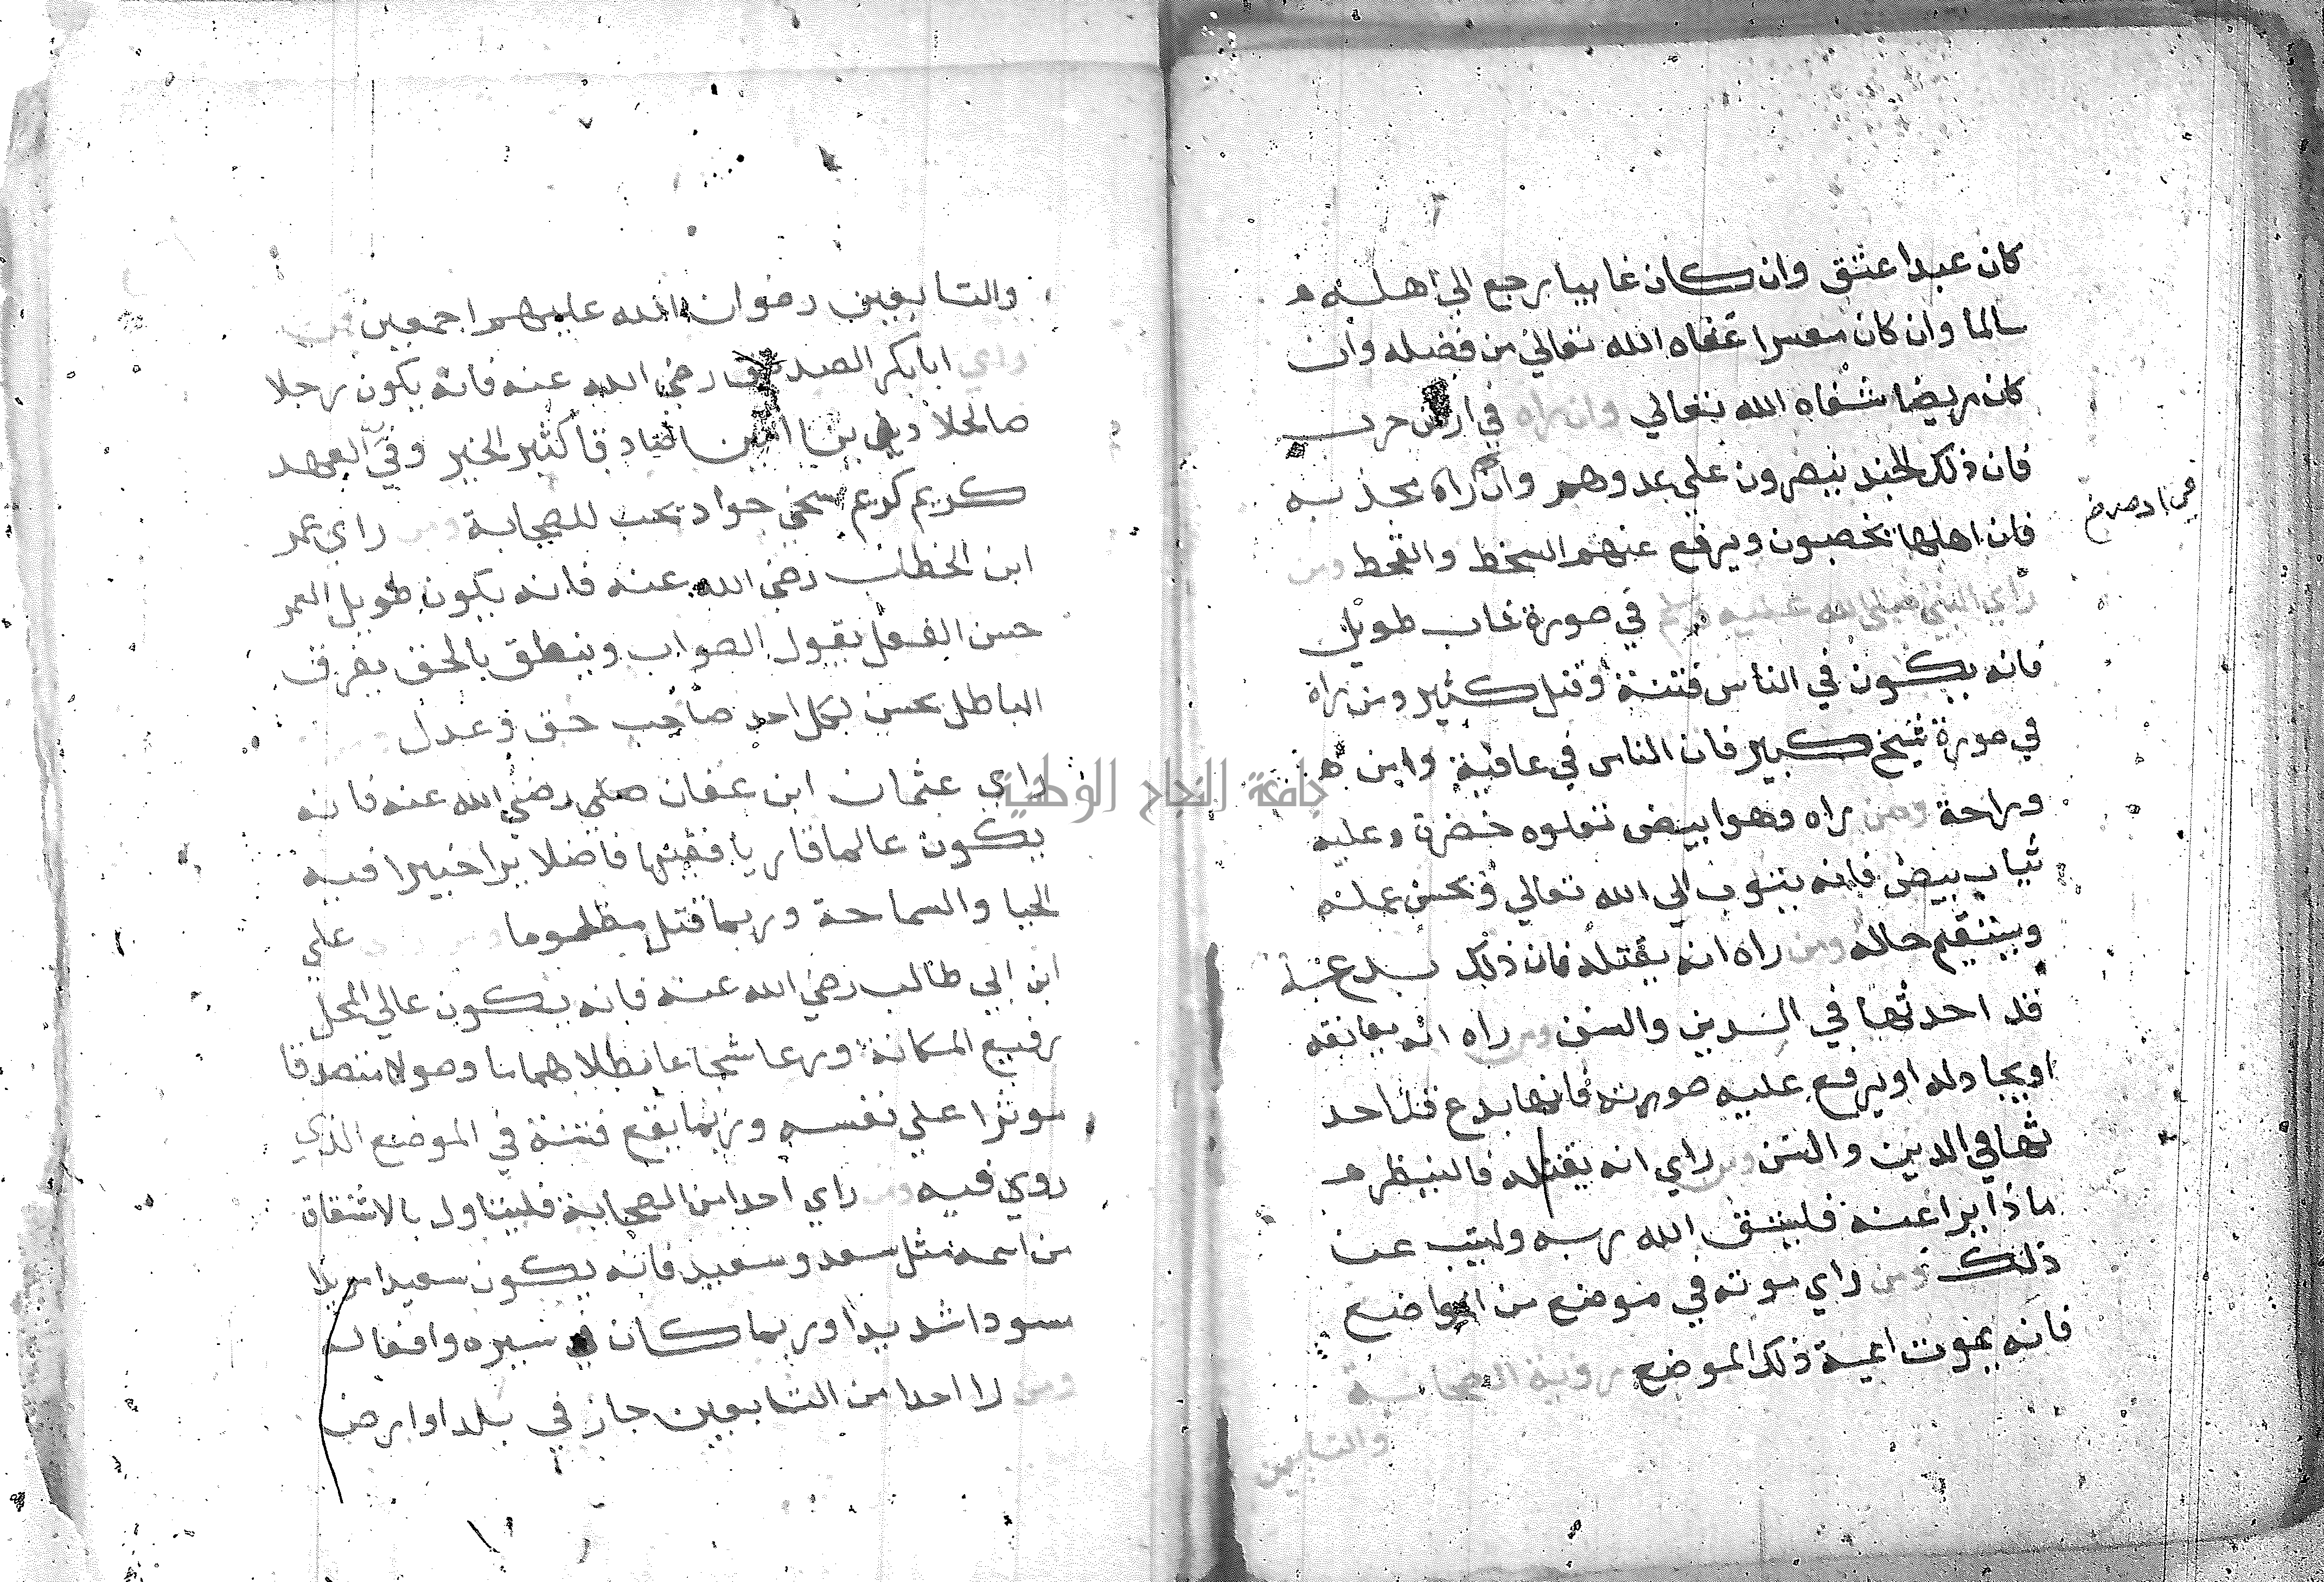 كان عبدا عتق وان كان غايبا يرجع الي اهله
سالما وان كان معسرا غناه الله تعالي من فضله وان
كان مريضا شفاه الله تعالي وان راه في ارض حرب
فان ذلك الجند ينصرون علي عدوهم وان راه بجذبه
فان اهلها يخصبون ويرفع عنهم السخط والقحط ومن
راي النبي صلي الله عليه وسلم في صورة شاب طويل
فانه يكون في الناس فتنة وقتل كثير ومن راه
في صورة شيخ كبير فان الناس في عافية وامن
وراحة ومن راه وهو ابيض تعلوه خضرة وعليه
ثياب بيض فانه يتوب الي الله تعالي ويحسن عمله
ويستقيم حاله ومن راه انه يقتله فان ذلك بدعة
قد احدثها في الدين والسنن ومن راه انه يعانقه
او يجادله او يرفع عليه صورته فانها بدع قد احد
ثها في الدين والسنن ومن راي انه يقتله فالينظر
ماذا برا عنه فليتق الله ربه وليتب عن
ذلك ومن راي موته في موضع من المواضع
فانه يموت ايمة ذلك الموضع روية الصحابة
والتابعين
والتابعين رضوان الله عليهم اجمعين من
راي ابا بكر الصديق رضي الله عنه فانه يكون رجلا
صالحا دينا امينا صادقا كثير الخير وفي العهد
كريم سخي جواد يحب للصحابة ومن راي عمر
ابن الخطاب رضي الله عنه فانه يكون طويل العمر
حسن الفعل يقول الصواب وينطق بالحق يفرق
الباطل يحسن لكل احد صاحب حق وعدل ومن
راي عثمان ابن عفان رضي الله عنه فانه
يكون عالما قاريا فقيها فاضلا برا خبيرا فيه
الحيا والسماحة وربما قتل مظلوما ومن راي علي
ابن ابي طالب رضي الله عنه فانه يكون عالي المحل
رفيع المكانة ورعا شجاعا بطلا هماما وصولا متصدقا
موثرا علي نفسه وربما يقع فتنة في الموضع الذي
روي فيه ومن راي احدا من الصحابة فليتاول بالاشتقاق
من اسمه مثل سعد وسعيد فانه يكون سعيدا مويدا
سودا شديدا وربما كان في سيره وافعاله
ومن را احدا من التابعين جاز في بلد او ارض
جامعة النجاح الوطنية